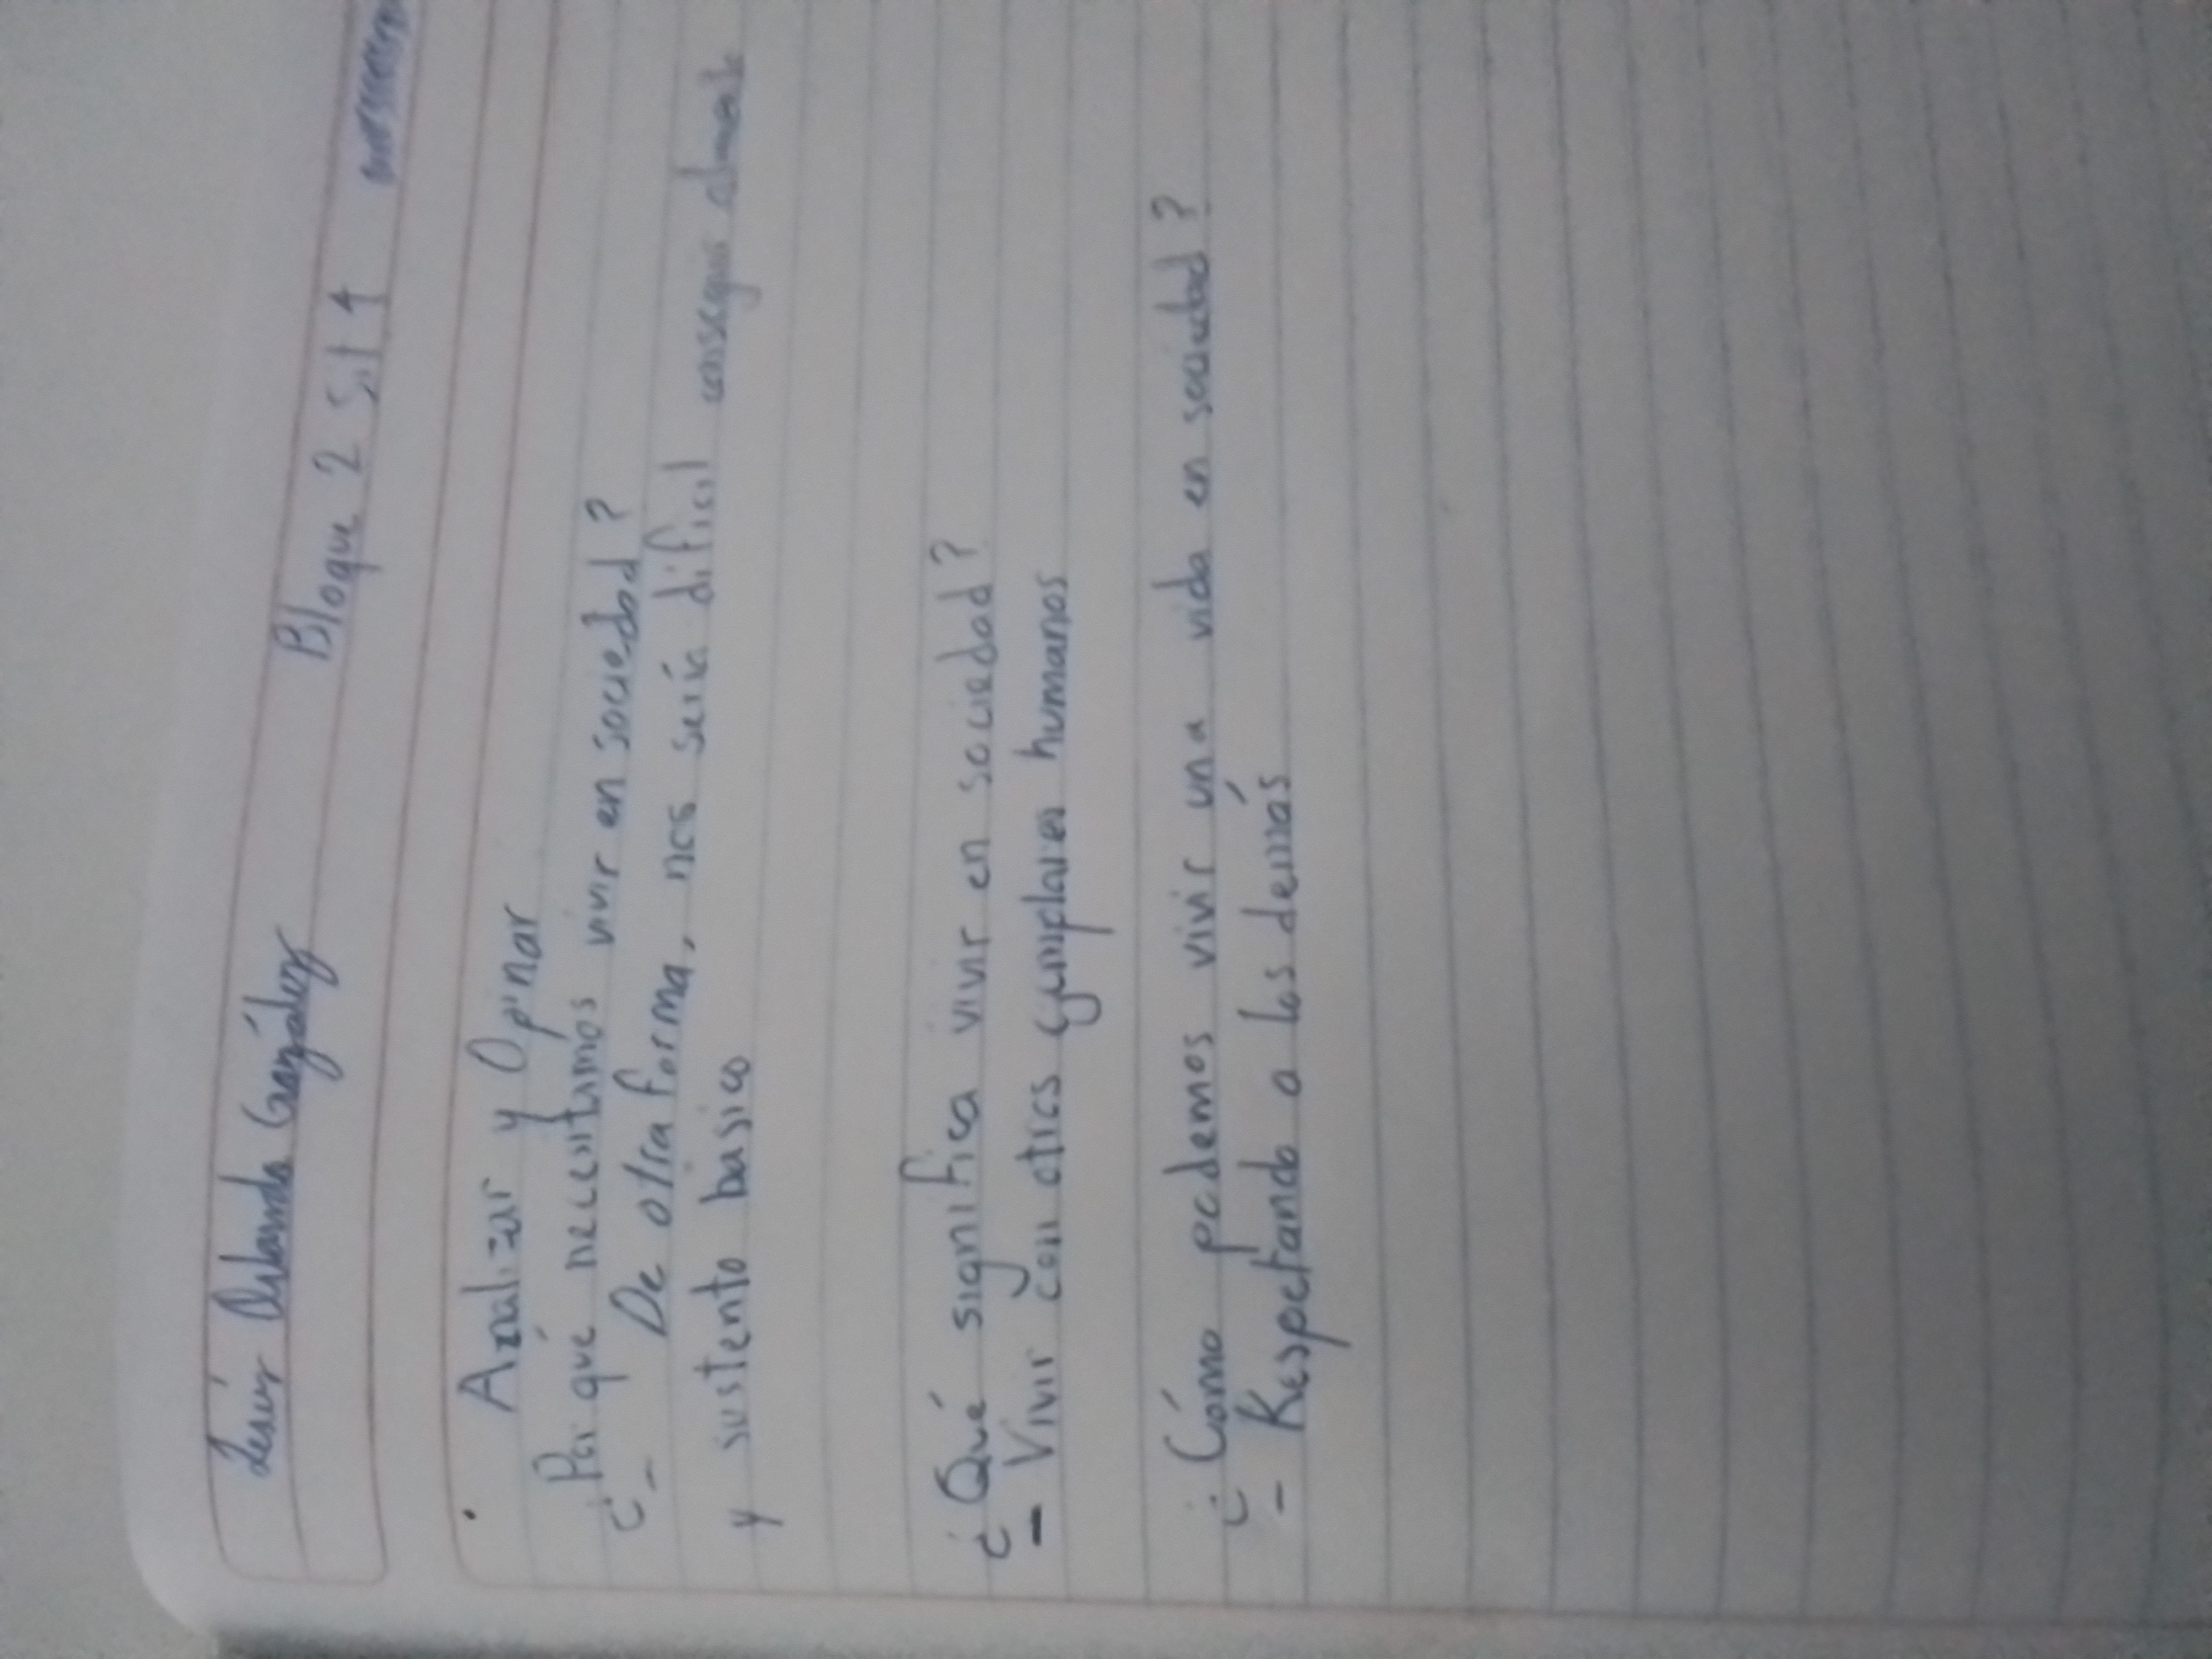 Jesús Orlando González
Bloque 2 Sit 4
Analizar y Opinar
¿Por qué necesitamos vivir en sociedad?
- De otra forma, nos sería dificil conseguir
y sustento basico
¿Qué significa vivir en sociedad?
- Vivir con otros ejemplares humanos
¿Cómo podemos vivir una vida en sociedad?
- Respetando a los demás